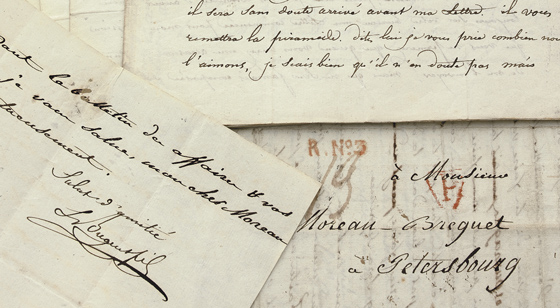 il sera sans doute arrivé avant ma Lettre. il vous
remettra la piramide, dites lui je vous prie combien nou
l'aimons, je scais bien qu'il n'en doute pas mais
la
de affaire & vos
je vous salue, mon cher Moreau
Salut d'amitié
R. N°3
à Monsieur
Moreau-Breguet
à Petersbourg